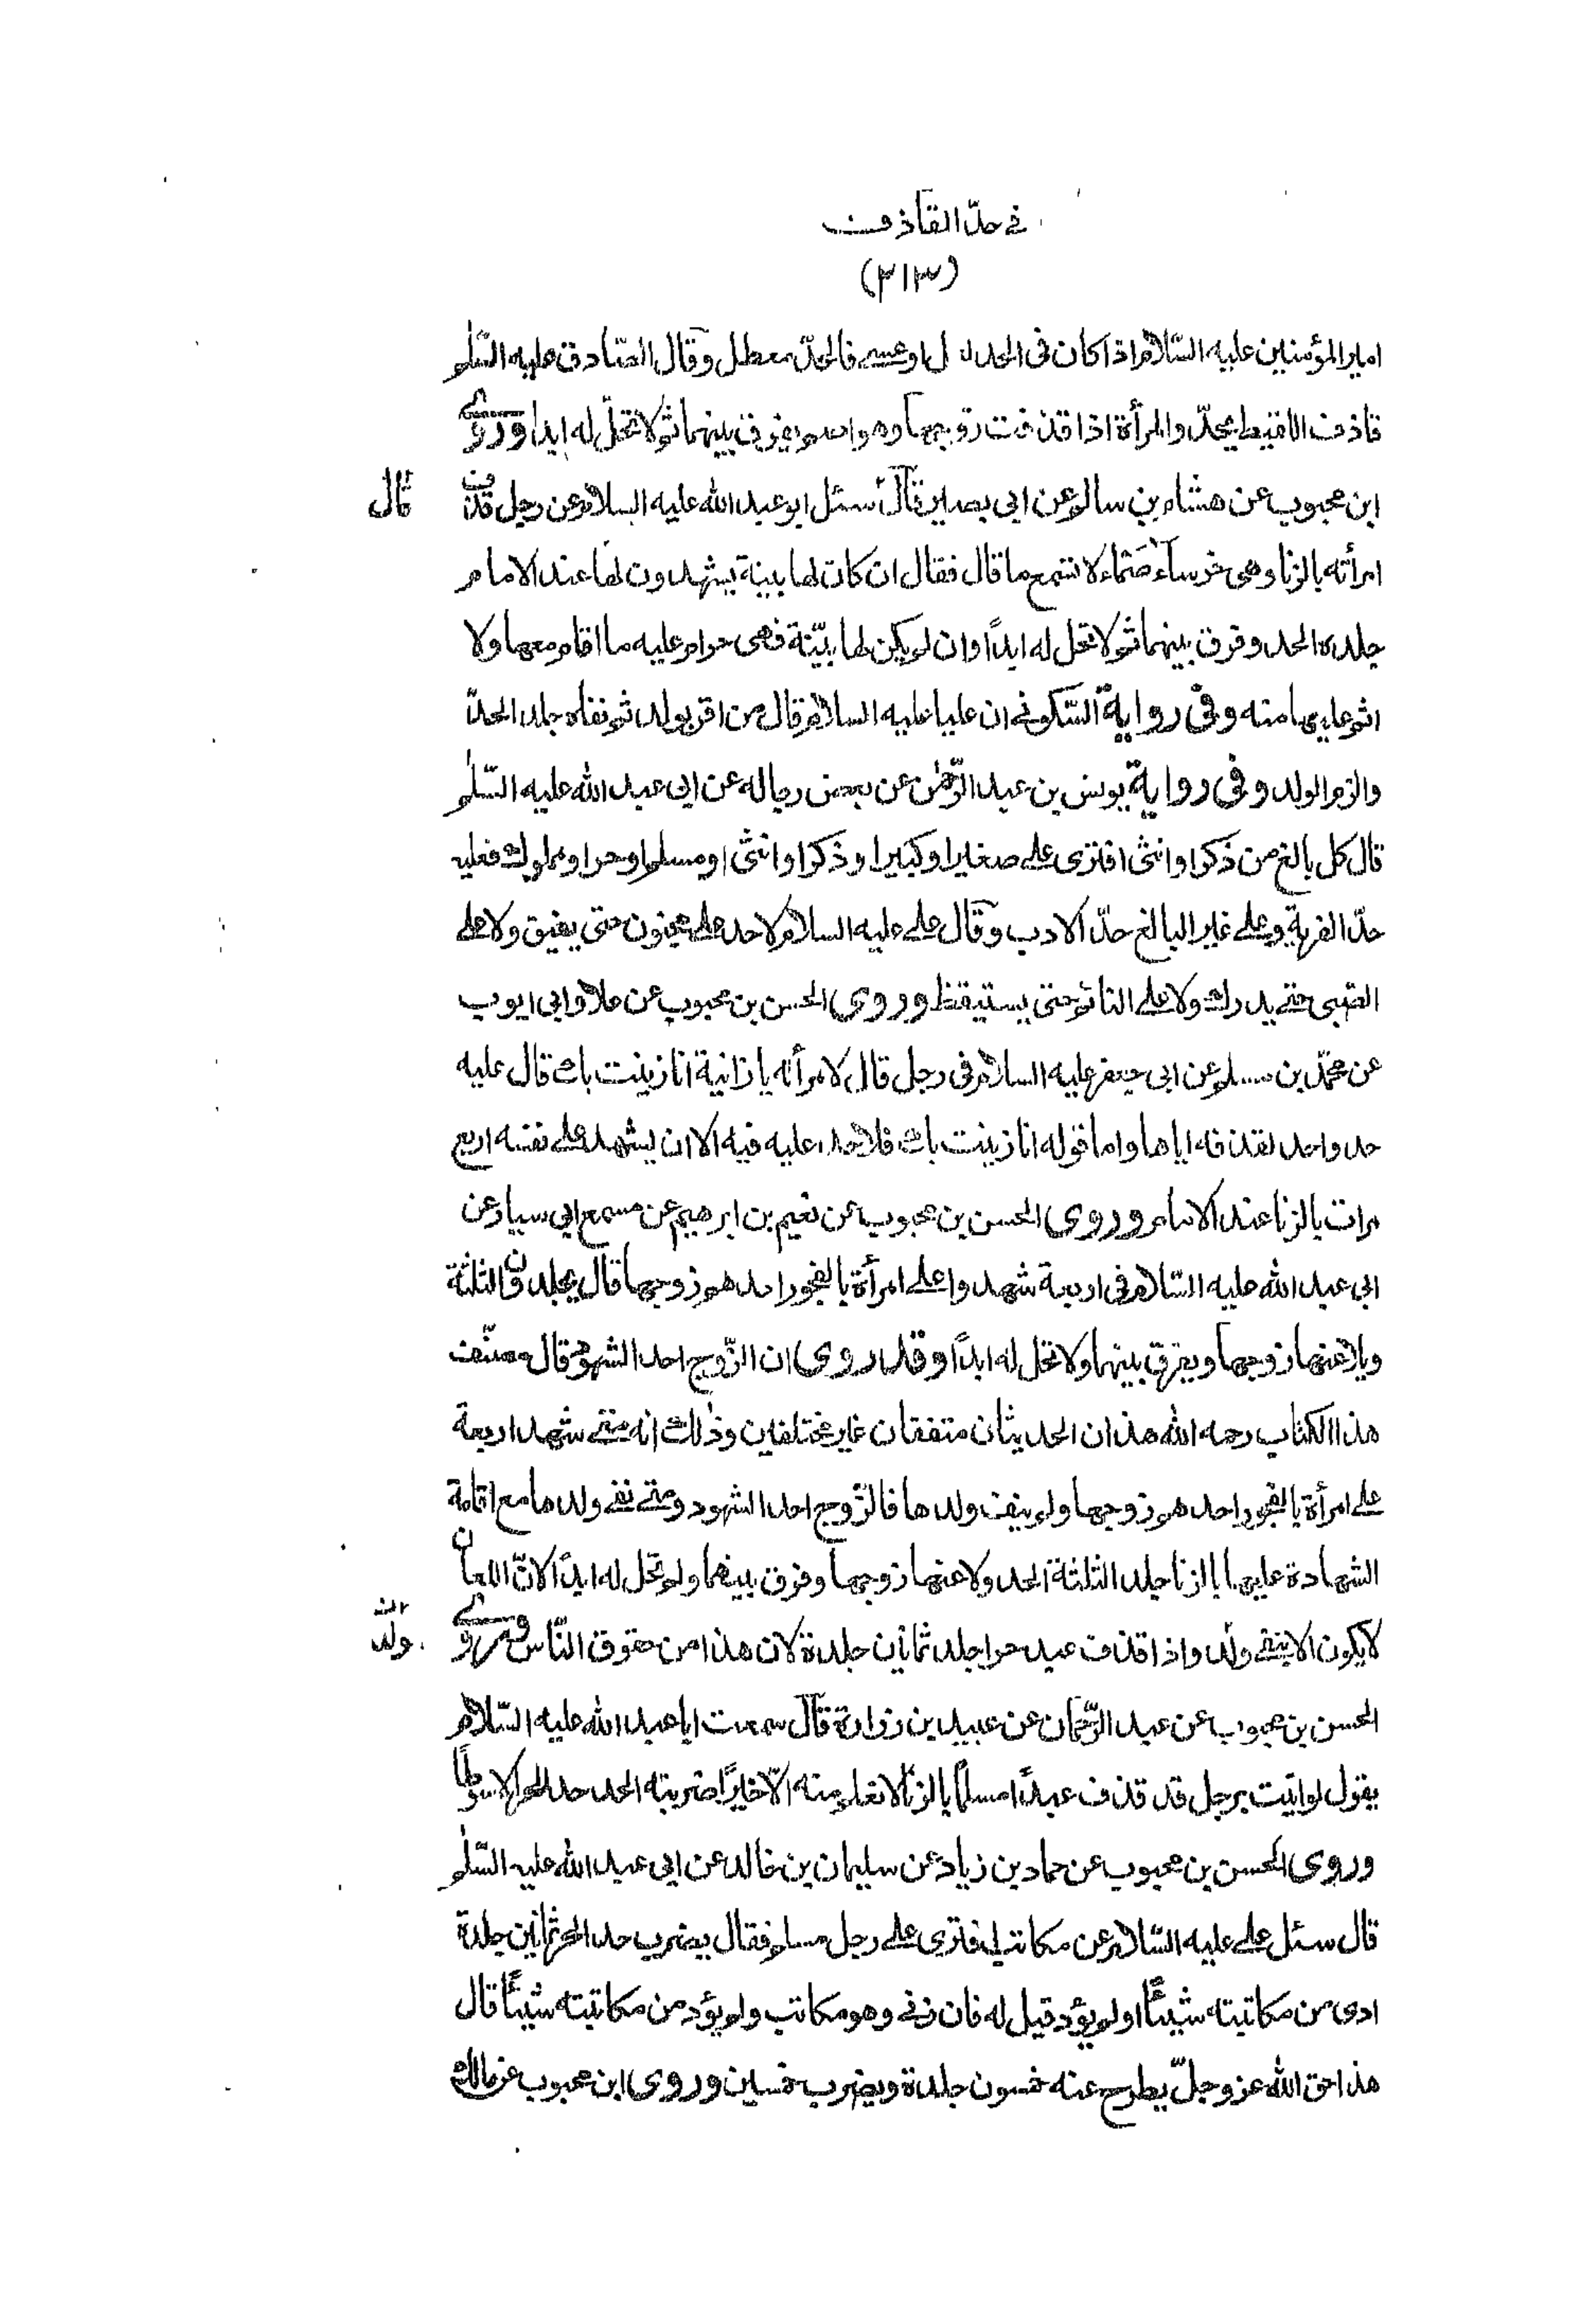 في حدّ القاذف
(٣١٣)
امير المؤمنين عليه السّلام اذا كان فى الحد لعل او عسى فالحدّ معطل وقال الصّادق عليه السّلم
قاذف اللقيط يحدّ والمرأة اذا قذفت زوجها وهو اصم يفرق بينهما ثم لا تحلّ له ابدا وروى
ابن محبوب عن هشام بن سالم عن ابى بصير قال سئل ابو عبد الله عليه السلام عن رجل قذف
قال
امرأته بالزنا وهى خرساء صمّاء لا تسمع ما قال فقال ان كان لها بينة يشهدون لها عند الامام
جلده الحد وفرق بينهما ثم لا تحل له ابدًا وان لم يكن لها بيّنة فهى حرام عليه ما اقام معها ولا
اثم عليها منه وفى رواية السّكونى ان عليا عليه السلام قال من اقر بولد ثم نفاه جلد الحدّ
والزم الولد وفى رواية يونس بن عبد الرّحمٰن عن بعض رجاله عن ابى عبد الله عليه السّلم
قال كل بالغ من ذكر او انثى افترى على صغير او كبير او ذكر او انثى او مسلم او حر او مملوك فعليه
حدّ الفرية وعلى غير البالغ حدّ الادب وقال على عليه السلام لا حد على مجنون حتى يفيق ولا على
الصّبى حتى يدرك ولا على النائم حتى يستيقظ وروى الحسن بن محبوب عن علا وابى ايوب
عن محمّد بن مسلم عن ابى جعفر عليه السلام فى رجل قال لامرأته يا زانية انا زنيت بك قال عليه
حد واحد لقذفه اياها واما قوله انا زنيت بك فلا حد عليه فيه الا ان يشهد على نفسه اربع
مرات بالزنا عند الامام وروى الحسن بن محبوب عن نعيم بن ابرهيم عن مسمع ابى سيار عن
ابى عبد الله عليه السّلام فى اربعة شهدوا على امرأة بالفجور احدهم زوجها قال يجلدون الثلثة
ويلاعنها زوجها ويفرق بينهما ولا تحل له ابدًا وقد روى ان الزّوج احد الشهود قال مصنّف
هذا الكتاب رحمه الله هذان الحديثان متفقان غير مختلفين وذٰلك انه متى شهد اربعة
على امرأة بالفجور احدهم زوجها ولم ينف ولدها فالزّوج احد الشهود ومتى نفى ولدها مع اقامة
الشهادة عليها بالزنا جلد الثلثة الحد ولاعنها زوجها وفرق بينهما ولم تحل له ابدًا لانّ اللعان
لا يكون الا بنفى ولد واذا قذف عبد حرا جلد ثمانين جلدة لان هذا من حقوق النّاس وروى
ولد
الحسن بن محبوب عن عبد الرّحمان عن عبيد بن زرارة قال سمعت ابا عبد الله عليه السّلام
يقول لو اتيت برجل قد قذف عبدًا مسلمًا بالزنا لا نعلم منه الّا خيرًا لضربته الحد حد الحر الا سوطًا
وروى الحسن بن محبوب عن حماد بن زياد عن سليمان بن خالد عن ابى عبد الله عليه السّلم
قال سئل على عليه السّلام عن مكاتب افترى على رجل مسلم فقال يضرب حد الحر ثمانين جلدة
ادى من مكاتبته شيئًا او لم يؤد قيل له فان زنى وهو مكاتب ولم يؤد من مكاتبته شيئًا قال
هذا حق الله عز وجلّ يطرح عنه خمسون جلدة ويضرب خمسين وروى ابن محبوب عن مالك